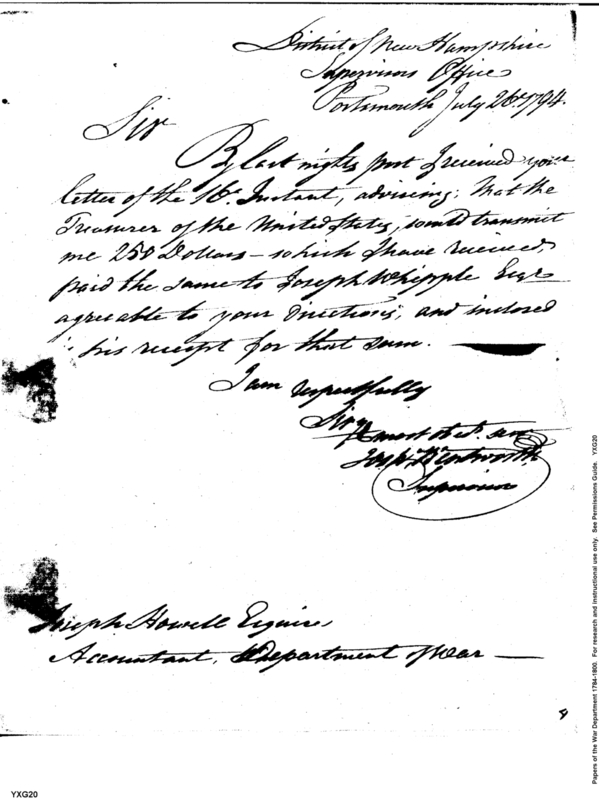 District of New Hampshire
Supervisors Office
Portsmouth July 26. 1794.
Sir
By last nights post I received your
letter of the 16th Instant, advising; that the
Treasurer of the United States, would transmit
me 250 Dollars - which I have received,
paid the same to Joseph Whipple Esqr
agreable to your Directions; and inclosed
is his receipt for that sum.
I am respectfully
Sir
Your most obt. ser
Josh. Wentworth
Supervisor
Joseph Howell Esquire,
Accountant, Department of War
Papers of the War Department 1784-1800. For research and instructional use only. See Permissions Guide. YXG20
YXG20